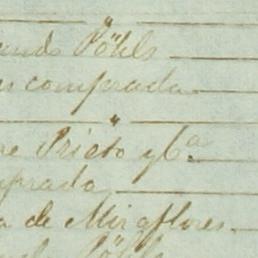 "
ando Pöhls
as comprada
"
re Prieto y Cª
mprado
a de Miraflores
Pöhls